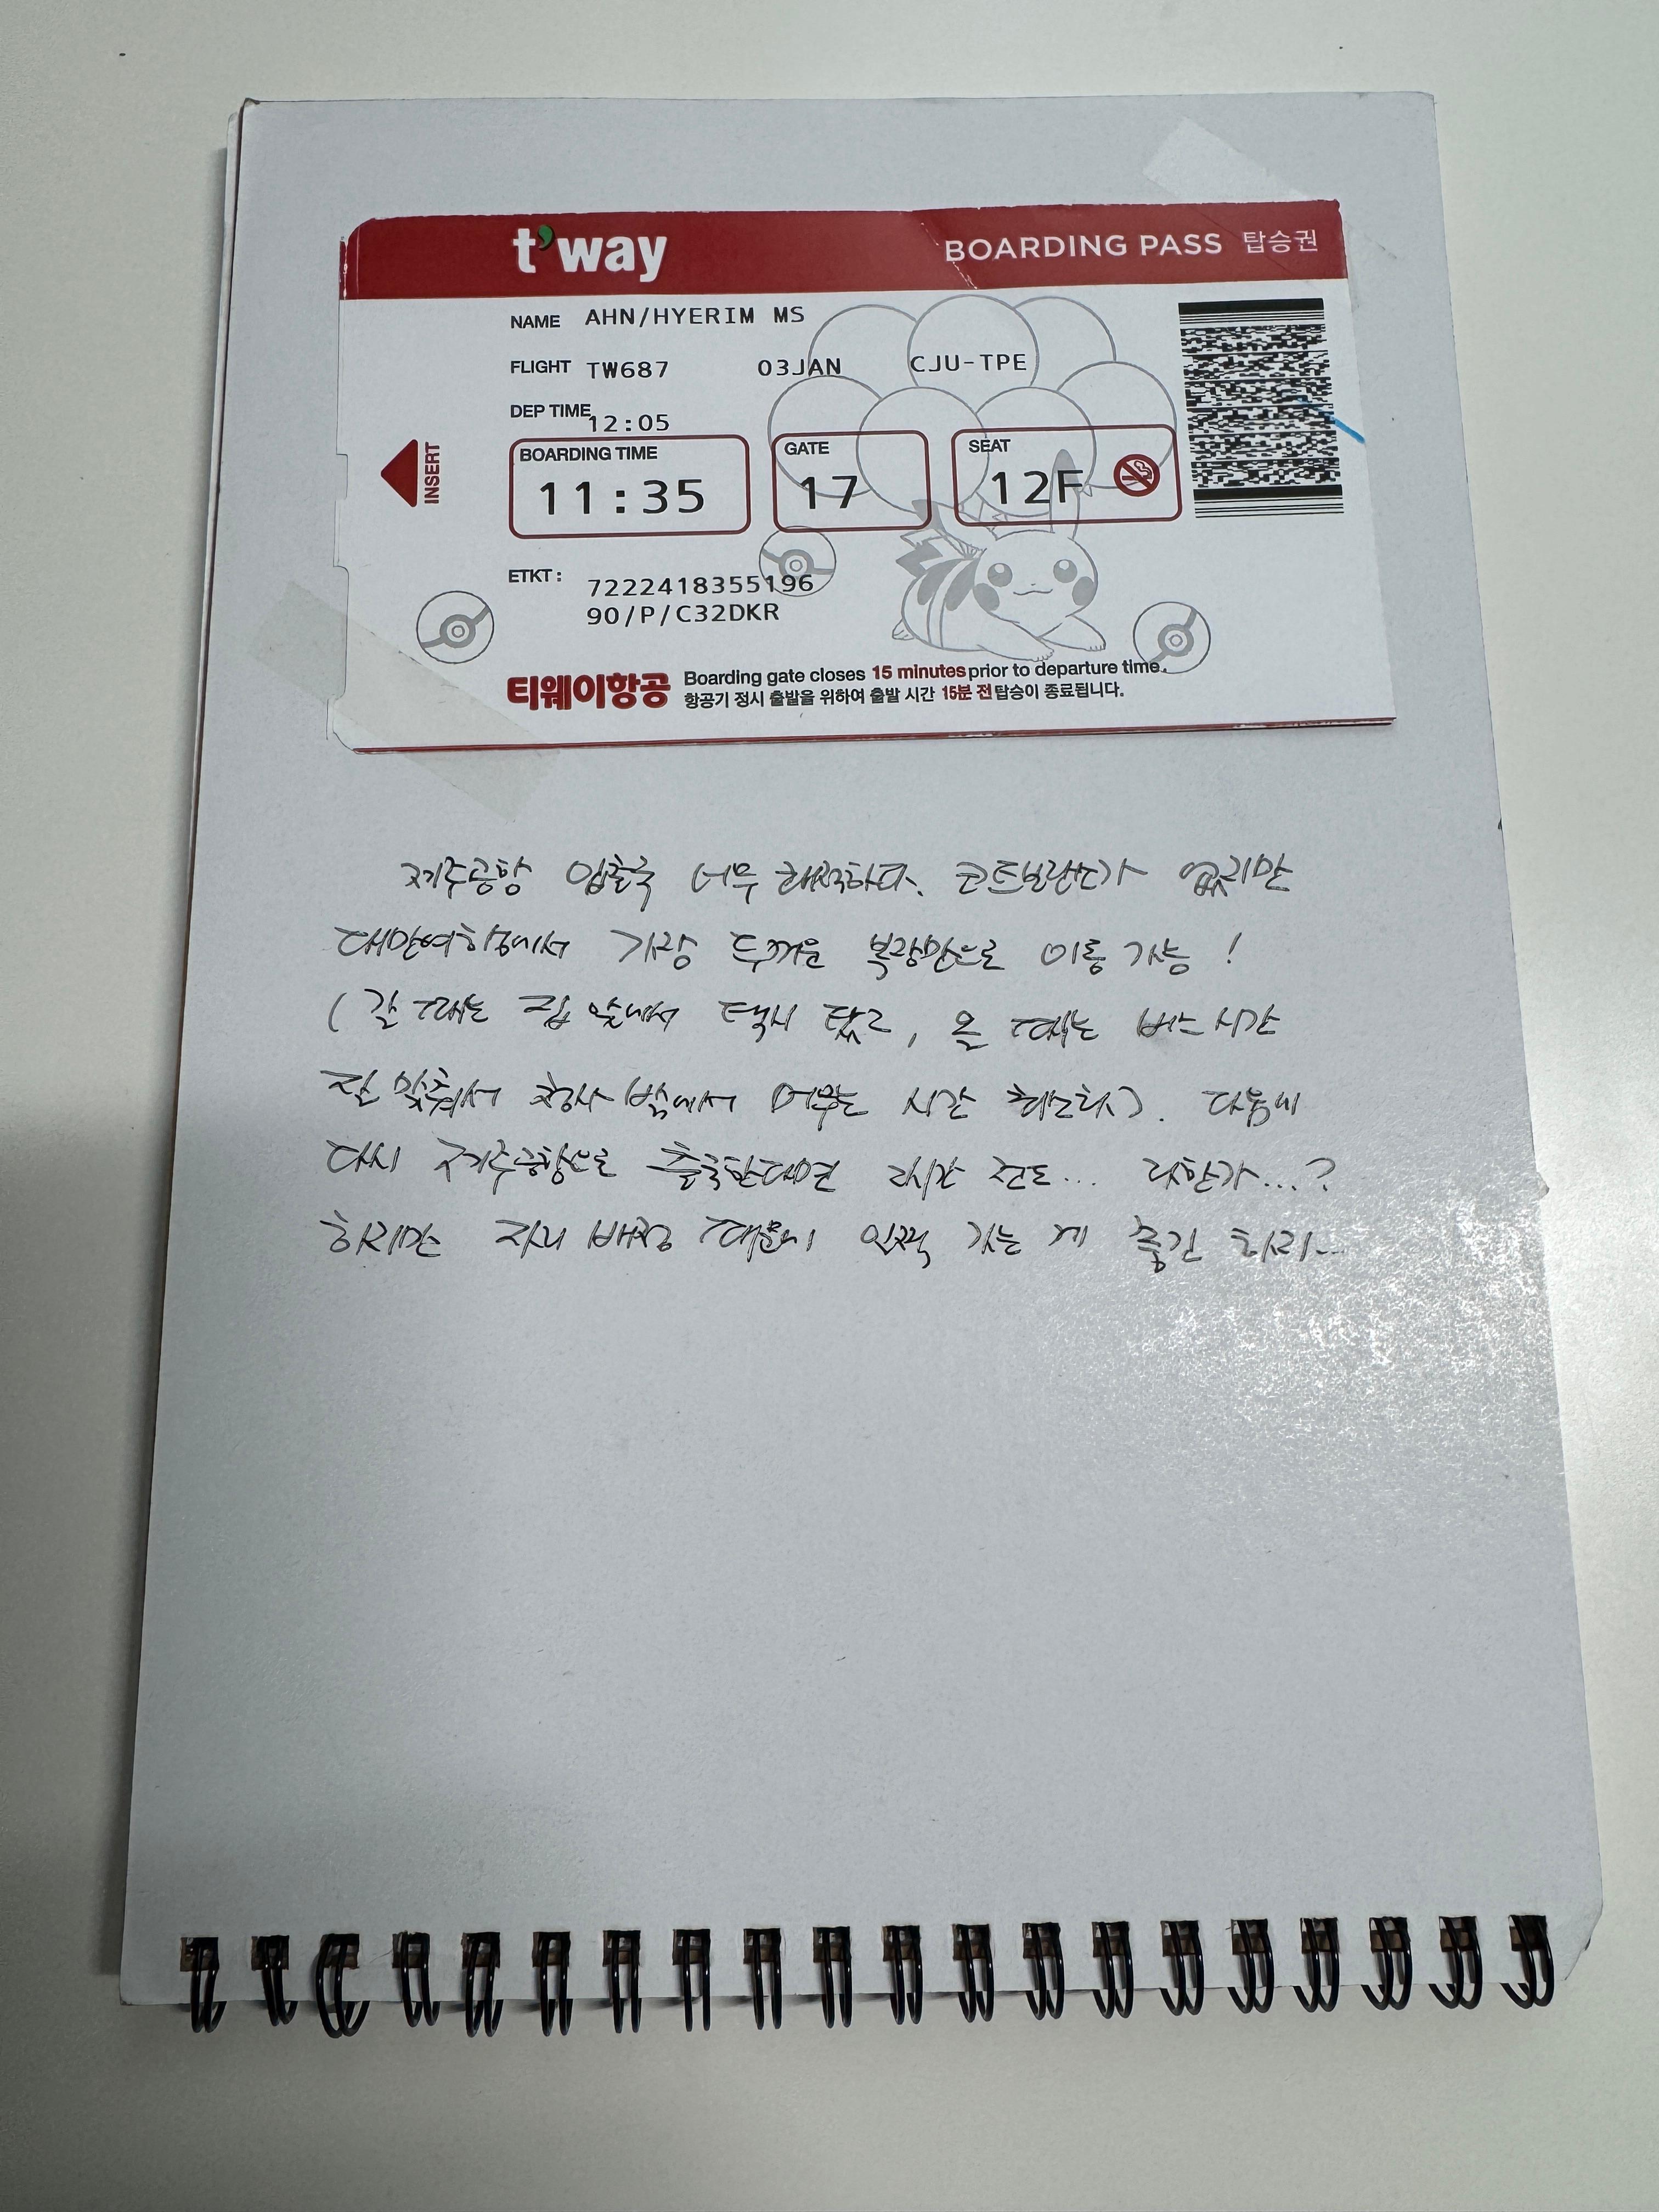 t'way BOARDING PASS 탑승권
NAME AHN/HYERIM MS
FLIGHT TW687 03JAN CJU-TPE
DEP TIME 12:05
INSERT
BOARDING TIME GATE SEAT
11:35 17 12F
ETKT: 7222418355196
90/P/C32DKR
티웨이항공 Boarding gate closes 15 minutes prior to departure time.
항공기 정시 출발을 위하여 출발 시간 15분 전 탑승이 종료됩니다.
제주공항 입출국 너무 쾌적하다. 코트보관소가 없지만
대만여행에서 가장 두꺼운 복장만으로 이동 가능!
(갈 때는 집 앞에서 택시 탔고, 올 때는 버스 시간
잘 맞춰서 청사 밖에서 머무는 시간 최소화). 다음에
다시 제주공항으로 출국한다면 2시간 전도... 과한가...?
하지만 자리 배정 때문에 일찍 가는 게 좋긴 하지...